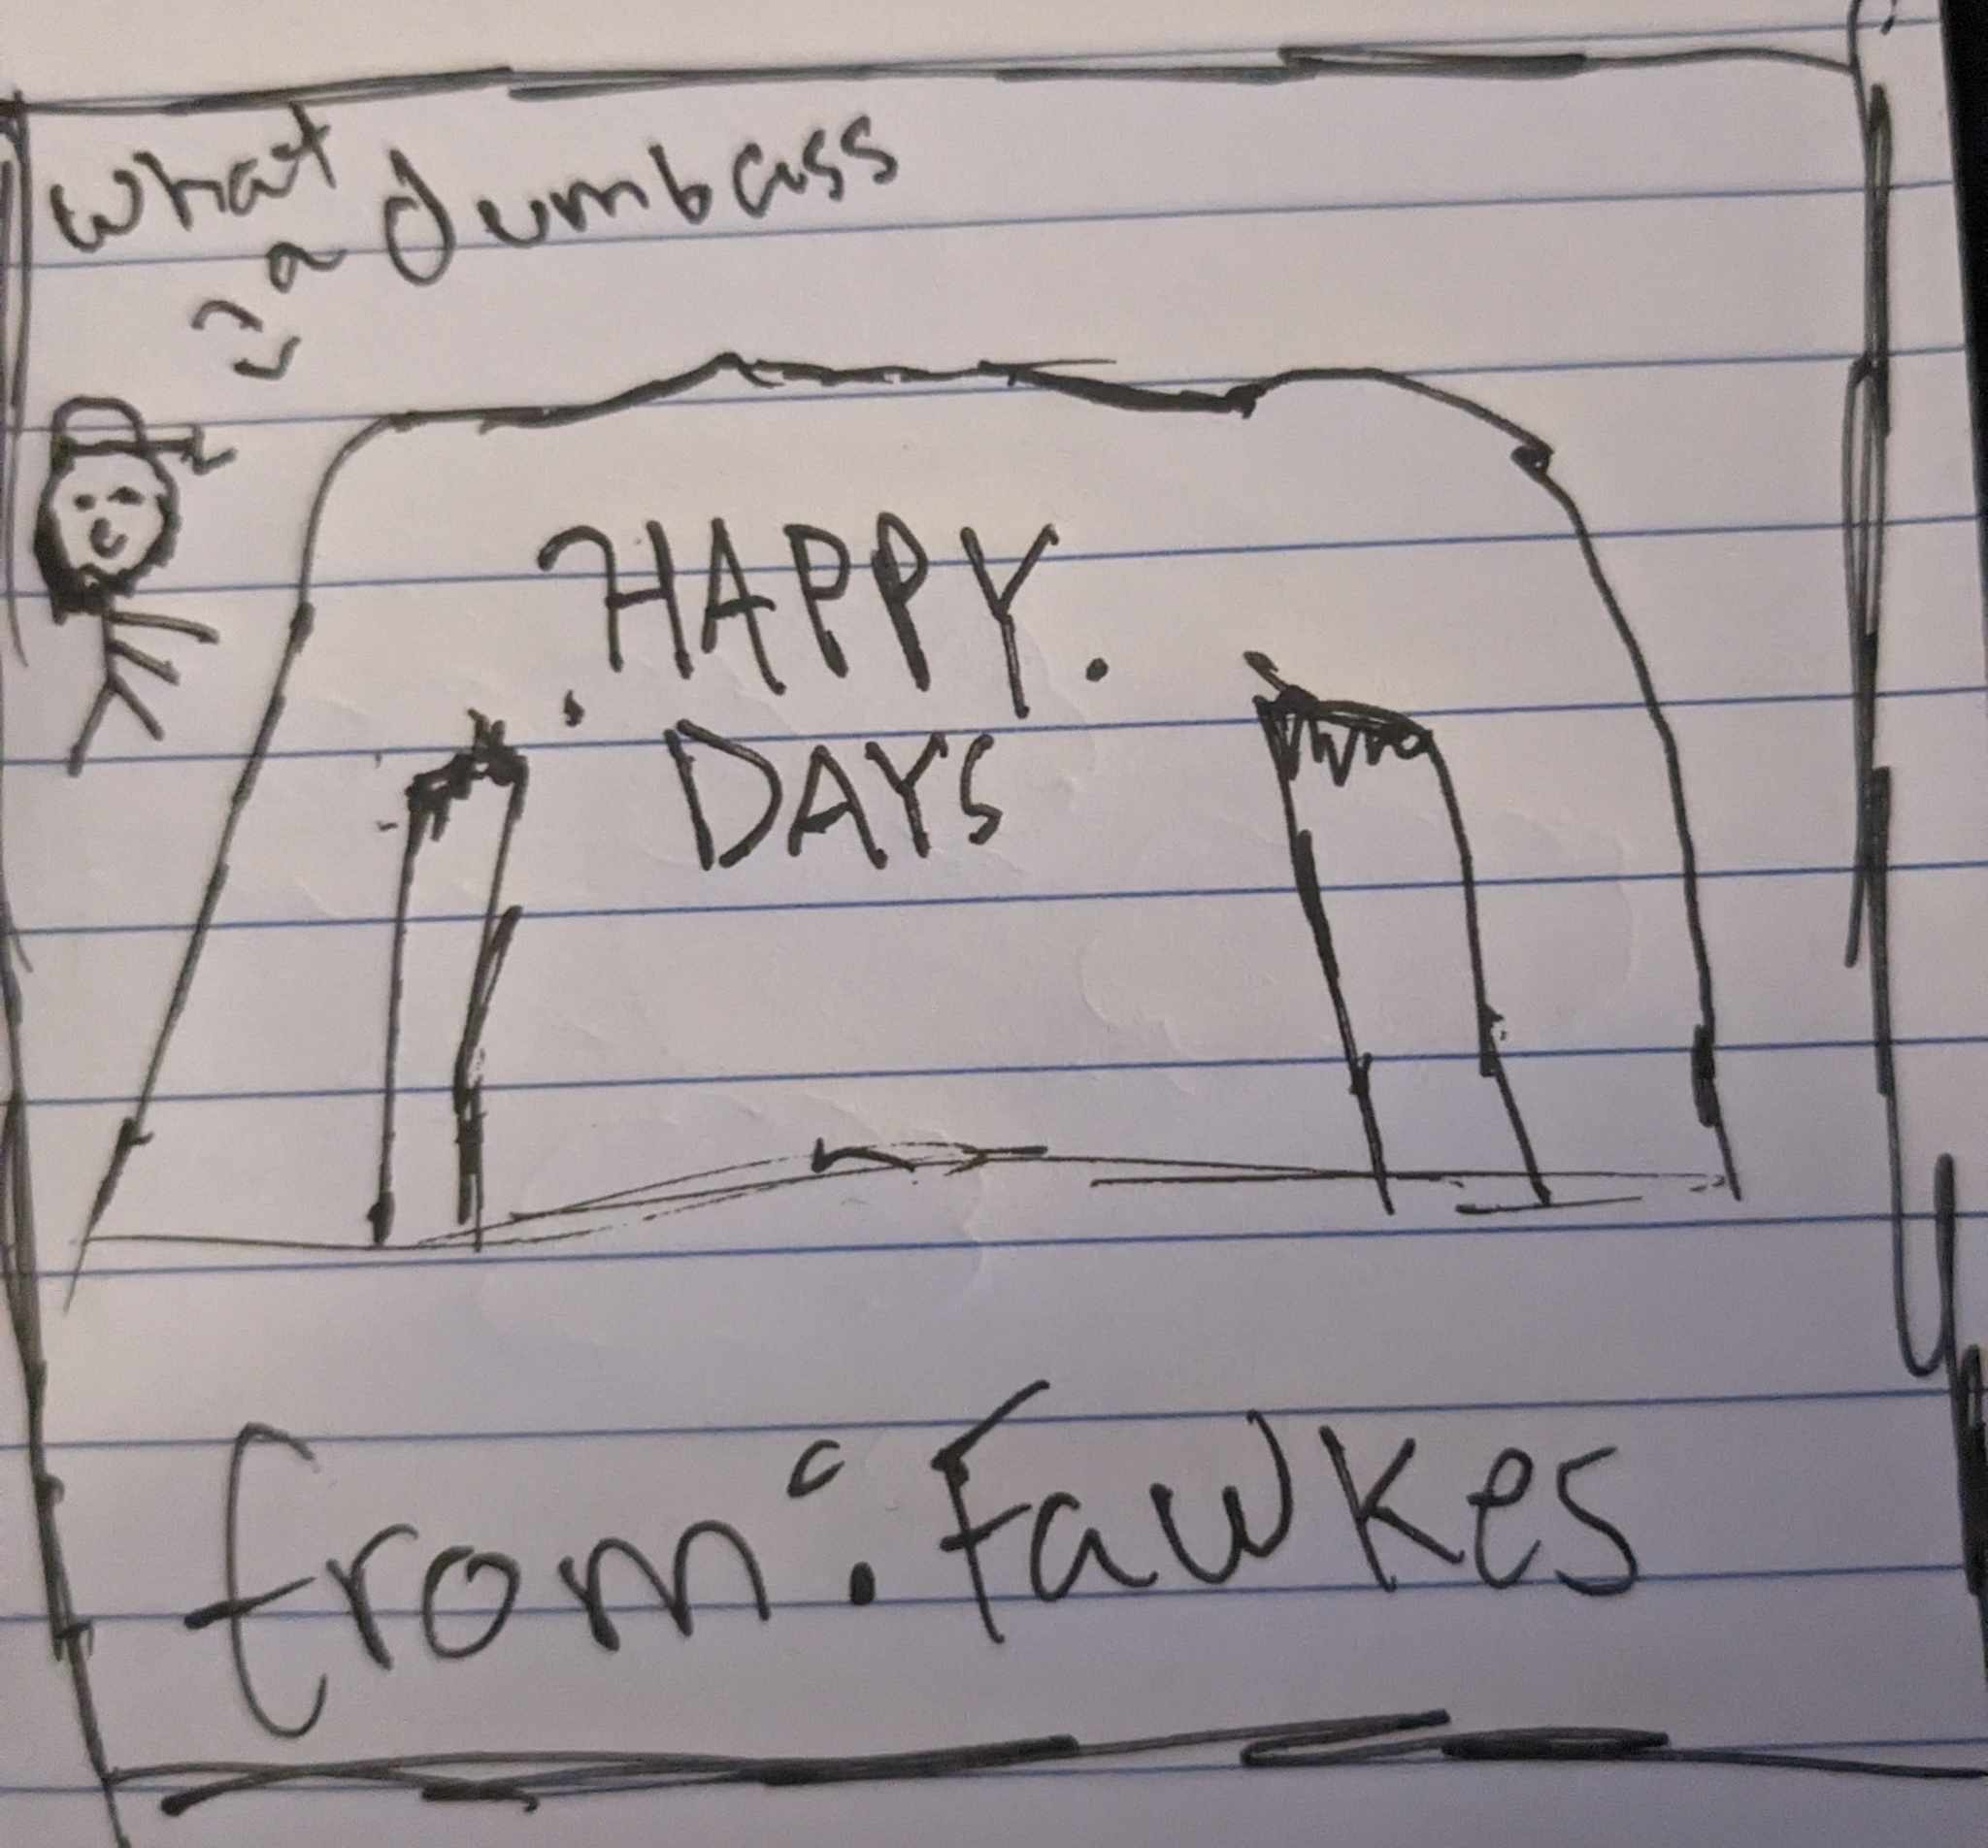 what
a dumbass
HAPPY.
DAYS
from: Fawkes